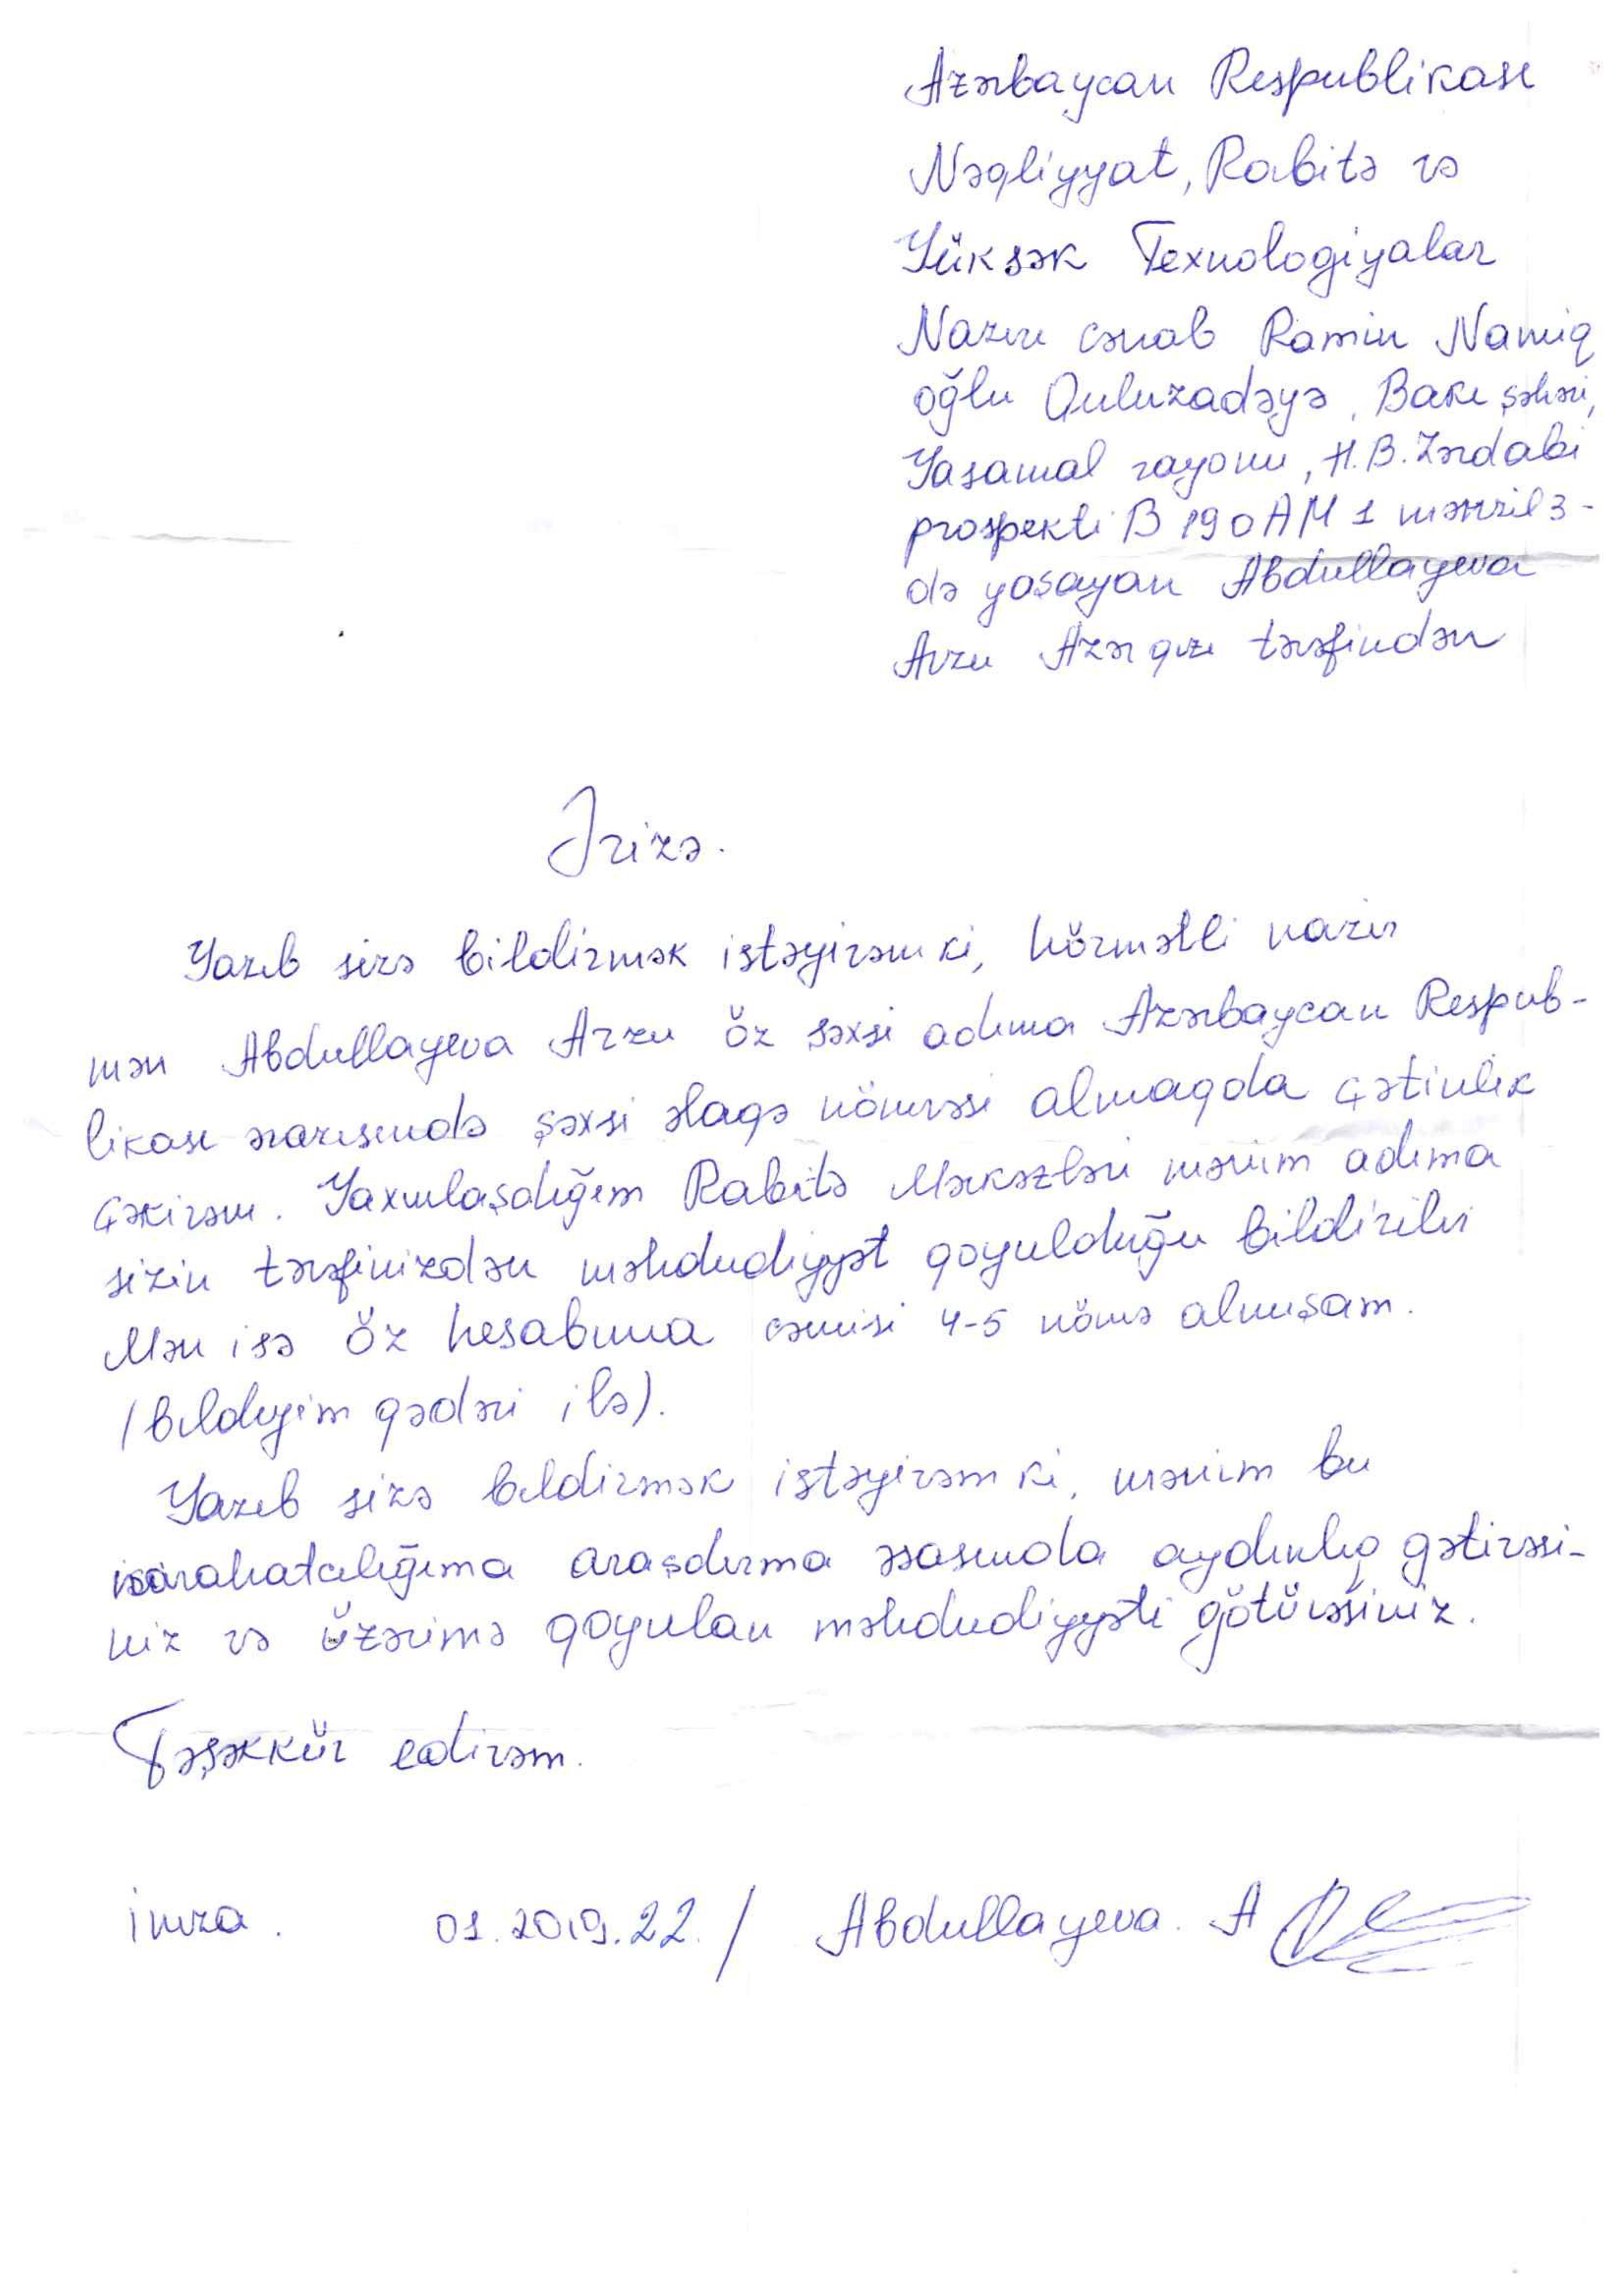 Azərbaycan Respublikası
Nəqliyyat, Rabitə və
Yüksək Texnologiyalar
Naziri cənab Ramin Namiq
oğlu Quluzadəyə, Bakı şəhəri,
Yasamal rayonu, H.B.Zərdabi
prospekti B 190 AM 1 mənzil 3-
də yaşayan Abdullayeva
Arzu Azər qızı tərəfindən
Ərizə.
Yazıb sizə bildirmək istəyirəm ki, hörmətli nazir
mən Abdullayeva Arzu öz şəxsi adıma Azərbaycan Respub-
likası ərazisində şəxsi əlaqə nömrəsi almaqda çətinlik
çəkirəm. Yaxınlaşdığım Rabitə Mərkəzləri mənim adıma
sizin tərəfinizdən məhdudiyyət qoyulduğu bildirilir
Mən isə öz hesabıma cəmisi 4-5 nömrə almışam.
(bildiyim qədəri ilə).
Yazıb sizə bildirmək istəyirəm ki, mənim bu
narahatçılığıma araşdırma əsasında aydınlıq gətirəsi-
niz və üzərimə qoyulan məhdudiyyəti götürəsiniz.
Təşəkkür edirəm.
imza. 01.2019.22. / Abdullayeva. A